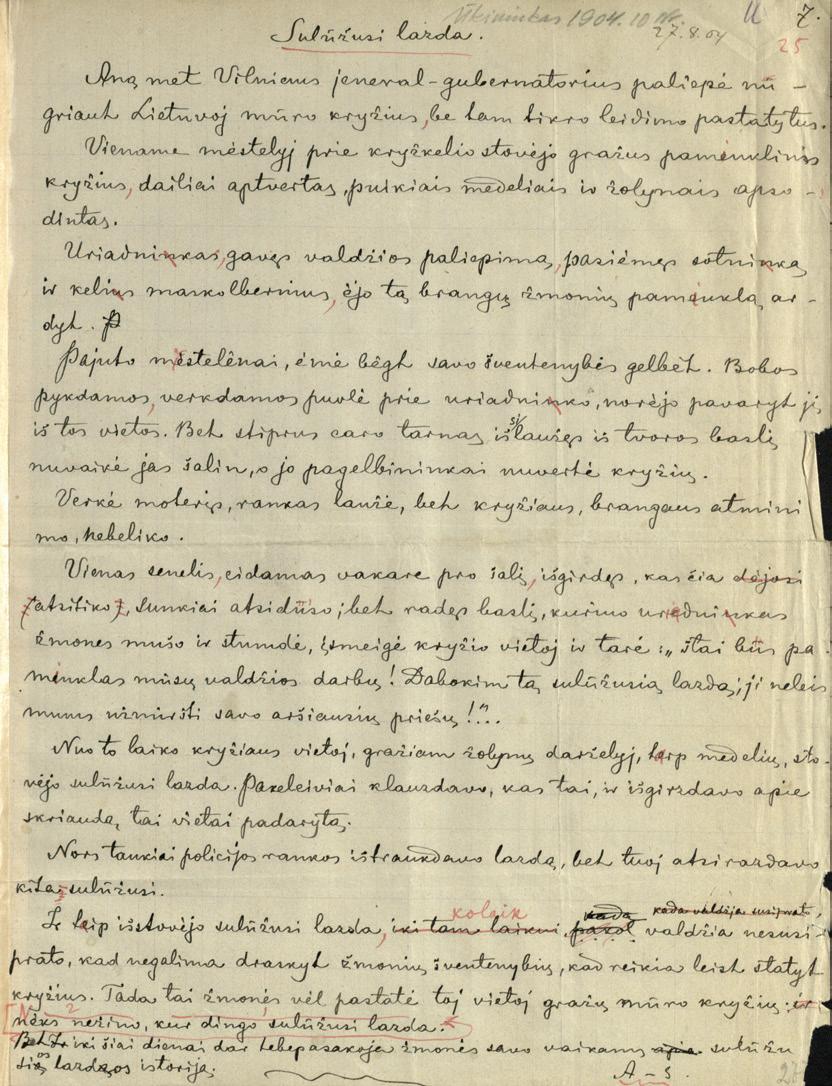 Ūkininkas 1904. 10 №. U 7.
27.8.04
25
Sulūžusi lazda.
Aną met Vilniaus jeneral-gubernatorius paliepė nu-
griaut Lietuvoj mūro kryžius, be tam tikro leidimo pastatytus.
Viename mėstelyj prie kryžkelio stovėjo gražus paminklinis
kryžius, dailiai aptvertas, puikiais medeliais ir žolynais apso-
dintas.
Uriadninkas, gavęs valdžios paliepimą, pasiėmęs sotninką
ir kelius maskolbernius, ėjo tą brangų žmonių paminklą ar-
dyt. P
Pajuto mėstelėnai, ėmė bėgt savo šventenybės gelbėt. Bobos
pykdamos, verkdamos puolė prie uriadninko, norėjo pavaryt jį
iš tos vietos. Bet stiprus caro tarnas išsilaužęs iš tvoros baslį
nuvaikė jas šalin, o jo pagelbininkai nuvertė kryžių.
Verkė moterįs, rankas laužė, bet kryžiaus, brangaus atmini
mo, nebeliko.
Vienas senelis, eidamas vakare pro šalį, išgirdęs, kas čia dėjosi
(atsitiko), sunkiai atsidūso; bet radęs baslį, kuriuo uredninkas
žmones mušo ir stumdė, įsmeigė kryžio vietoj ir tarė: „štai būs pa-
minklas mūsų valdžios darbų! Dabokim tą sulūžusią lazdą; ji neleis
mums užmiršti savo aršiausių priešų!“..
Nuo to laiko kryžiaus vietoj, gražiam žolynų darželyj, tarp medelių, sto-
vėjo sulūžusi lazda. Pakeleiviai klauzdavo, kas tai, ir išgirzdavo apie
skriaudą, tai vietai padarytą.
Nors tankiai policijos rankos ištraukdavo lazdą, bet tuoj atsirazdavo
kita sulūžusi.
Ir taip išstovėjo sulūžusi lazda, iki tam laikui koleik pakol kada kada valdžia susiprato, valdžia nesusi-
prato, kad negalima draskyt žmonių šventenybių, kad reikia leist statyt
kryžius. Tada tai žmonės vėl pastatė toj vietoj gražų mūro kryžių; ir
nėks nežino, kur dingo sulūžusi lazda.
Bet Ir iki šiai dienai dar tebepasakoja žmonės savo vaikams apie sulūžu
sios lazdos istoriją.
A-s.